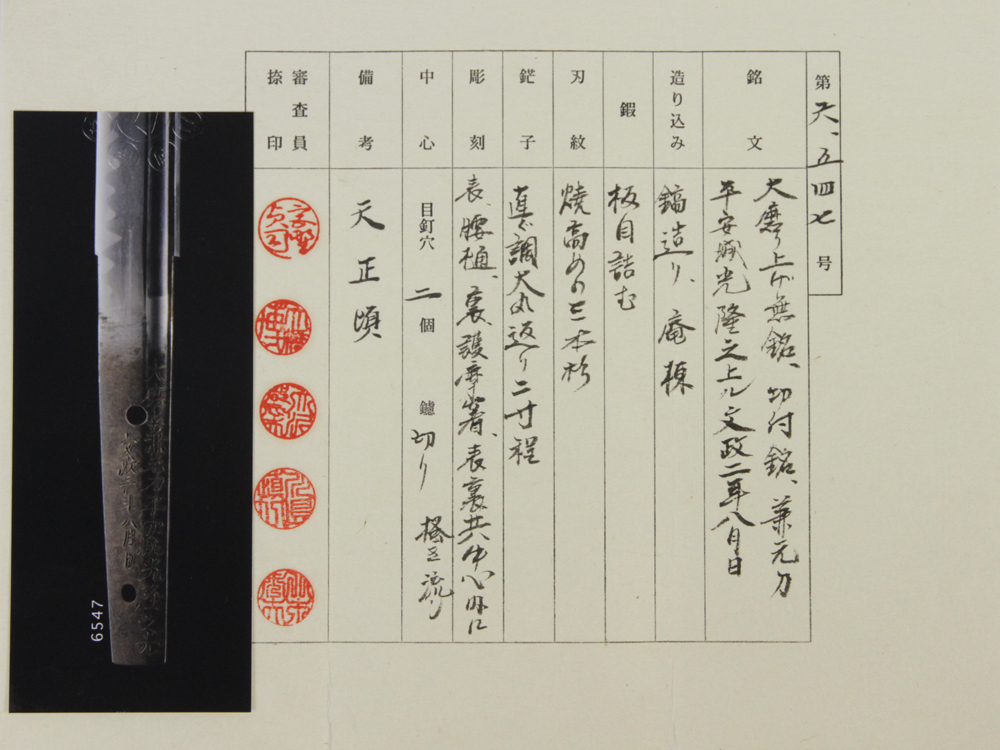 第六、五四七号
銘文
大磨り上げ無銘、切付銘、兼元刀
平安城光隆之上ル文政二年八月日
造り込み
鎬造り、庵棟
鍜
板目詰む
刃紋
焼高めの三本杉
鋩子
直ぐ調大丸返り二寸程
彫刻
表、腰樋、裏、護摩箸、表裏共中心内に
中心
目釘穴 二個 鑢 切り 掻き流り
備考
天正頃
審査員
捺印
6547